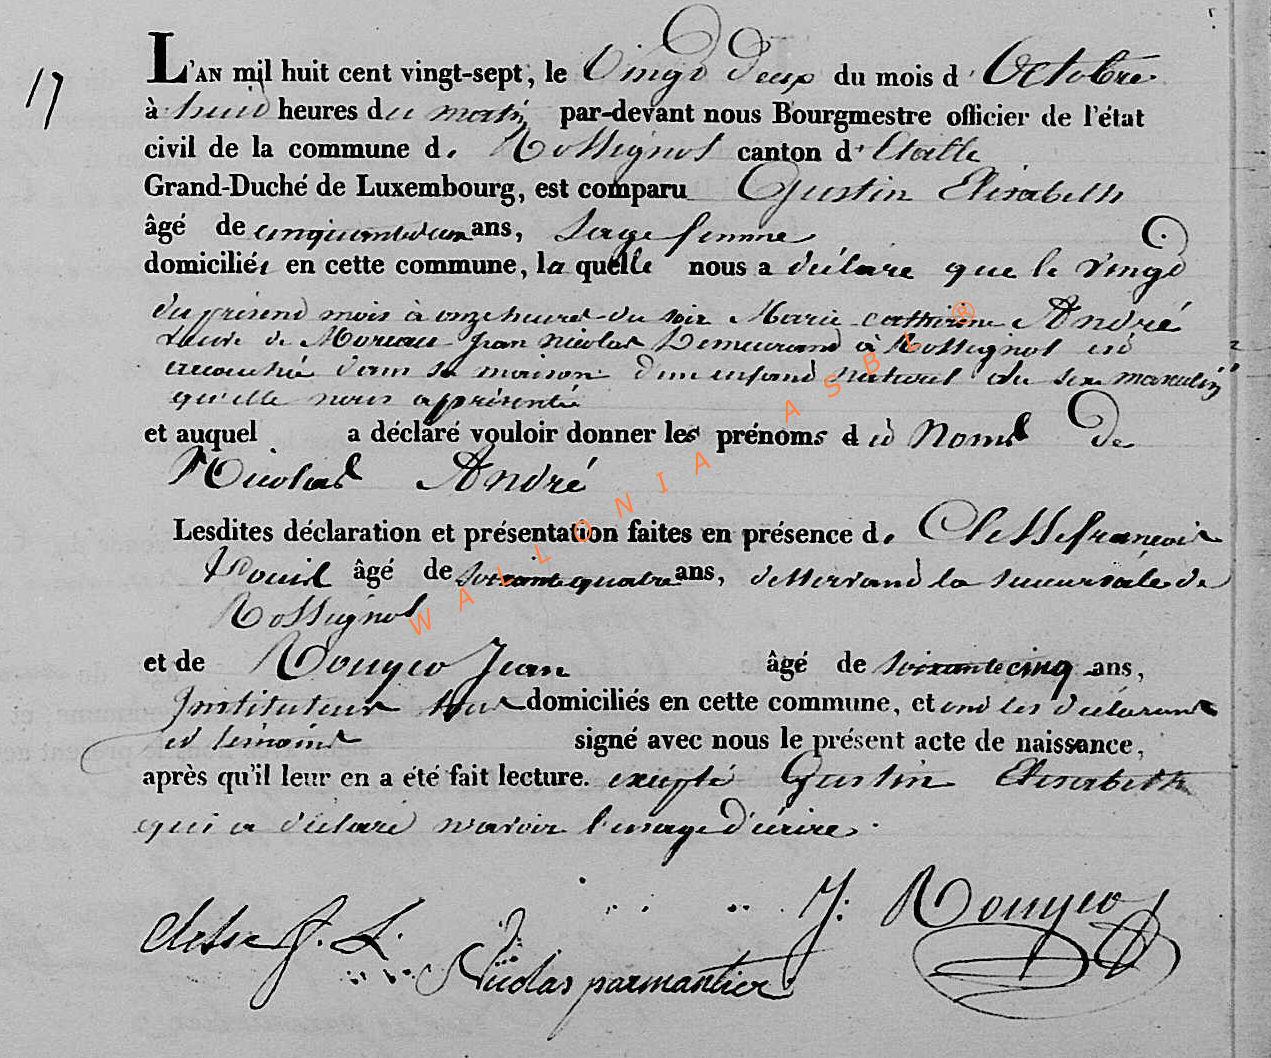 17
L'AN mil huit cent vingt-sept, le Vingt deux du mois d' Octobre
à huit heures du matin par-devant nous Bourgmestre officier de l'état
civil de la commune de Rossignol canton d' Etalle
Grand-Duché de Luxembourg, est comparu Gustin Elisabeth
âgé de cinquantedeux ans, sage femme
domiciliée en cette commune, la quelle nous a déclaré que le Vingt
du présent mois à onze heures du soir Marie Catherine André
veuve de Moreau Jean Nicolas demeurand à Rossignol est
accouchée dans sa maison d'un enfand naturel du sexe masculin
qu'elle nous a présenté
et auquel a déclaré vouloir donner les prénoms et Noms De
Nicolas André
Lesdites déclaration et présentation faites en présence de Clesse françois
Louis âgé de soixantequatre ans, desservand la succursale de
Rossignol
et de Rouyer Jean âgé de soixantecinq ans,
Instituteur tous domiciliés en cette commune, et ont les déclarant
et témoins signé avec nous le présent acte de naissance,
après qu'il leur en a été fait lecture. excepté Gustin Elisabeth
qui a déclaré n'avoir l'usage d'écrire.
J. Rouyer
f. L.
Nicolas parmantier
WALLONIA ASBL ®